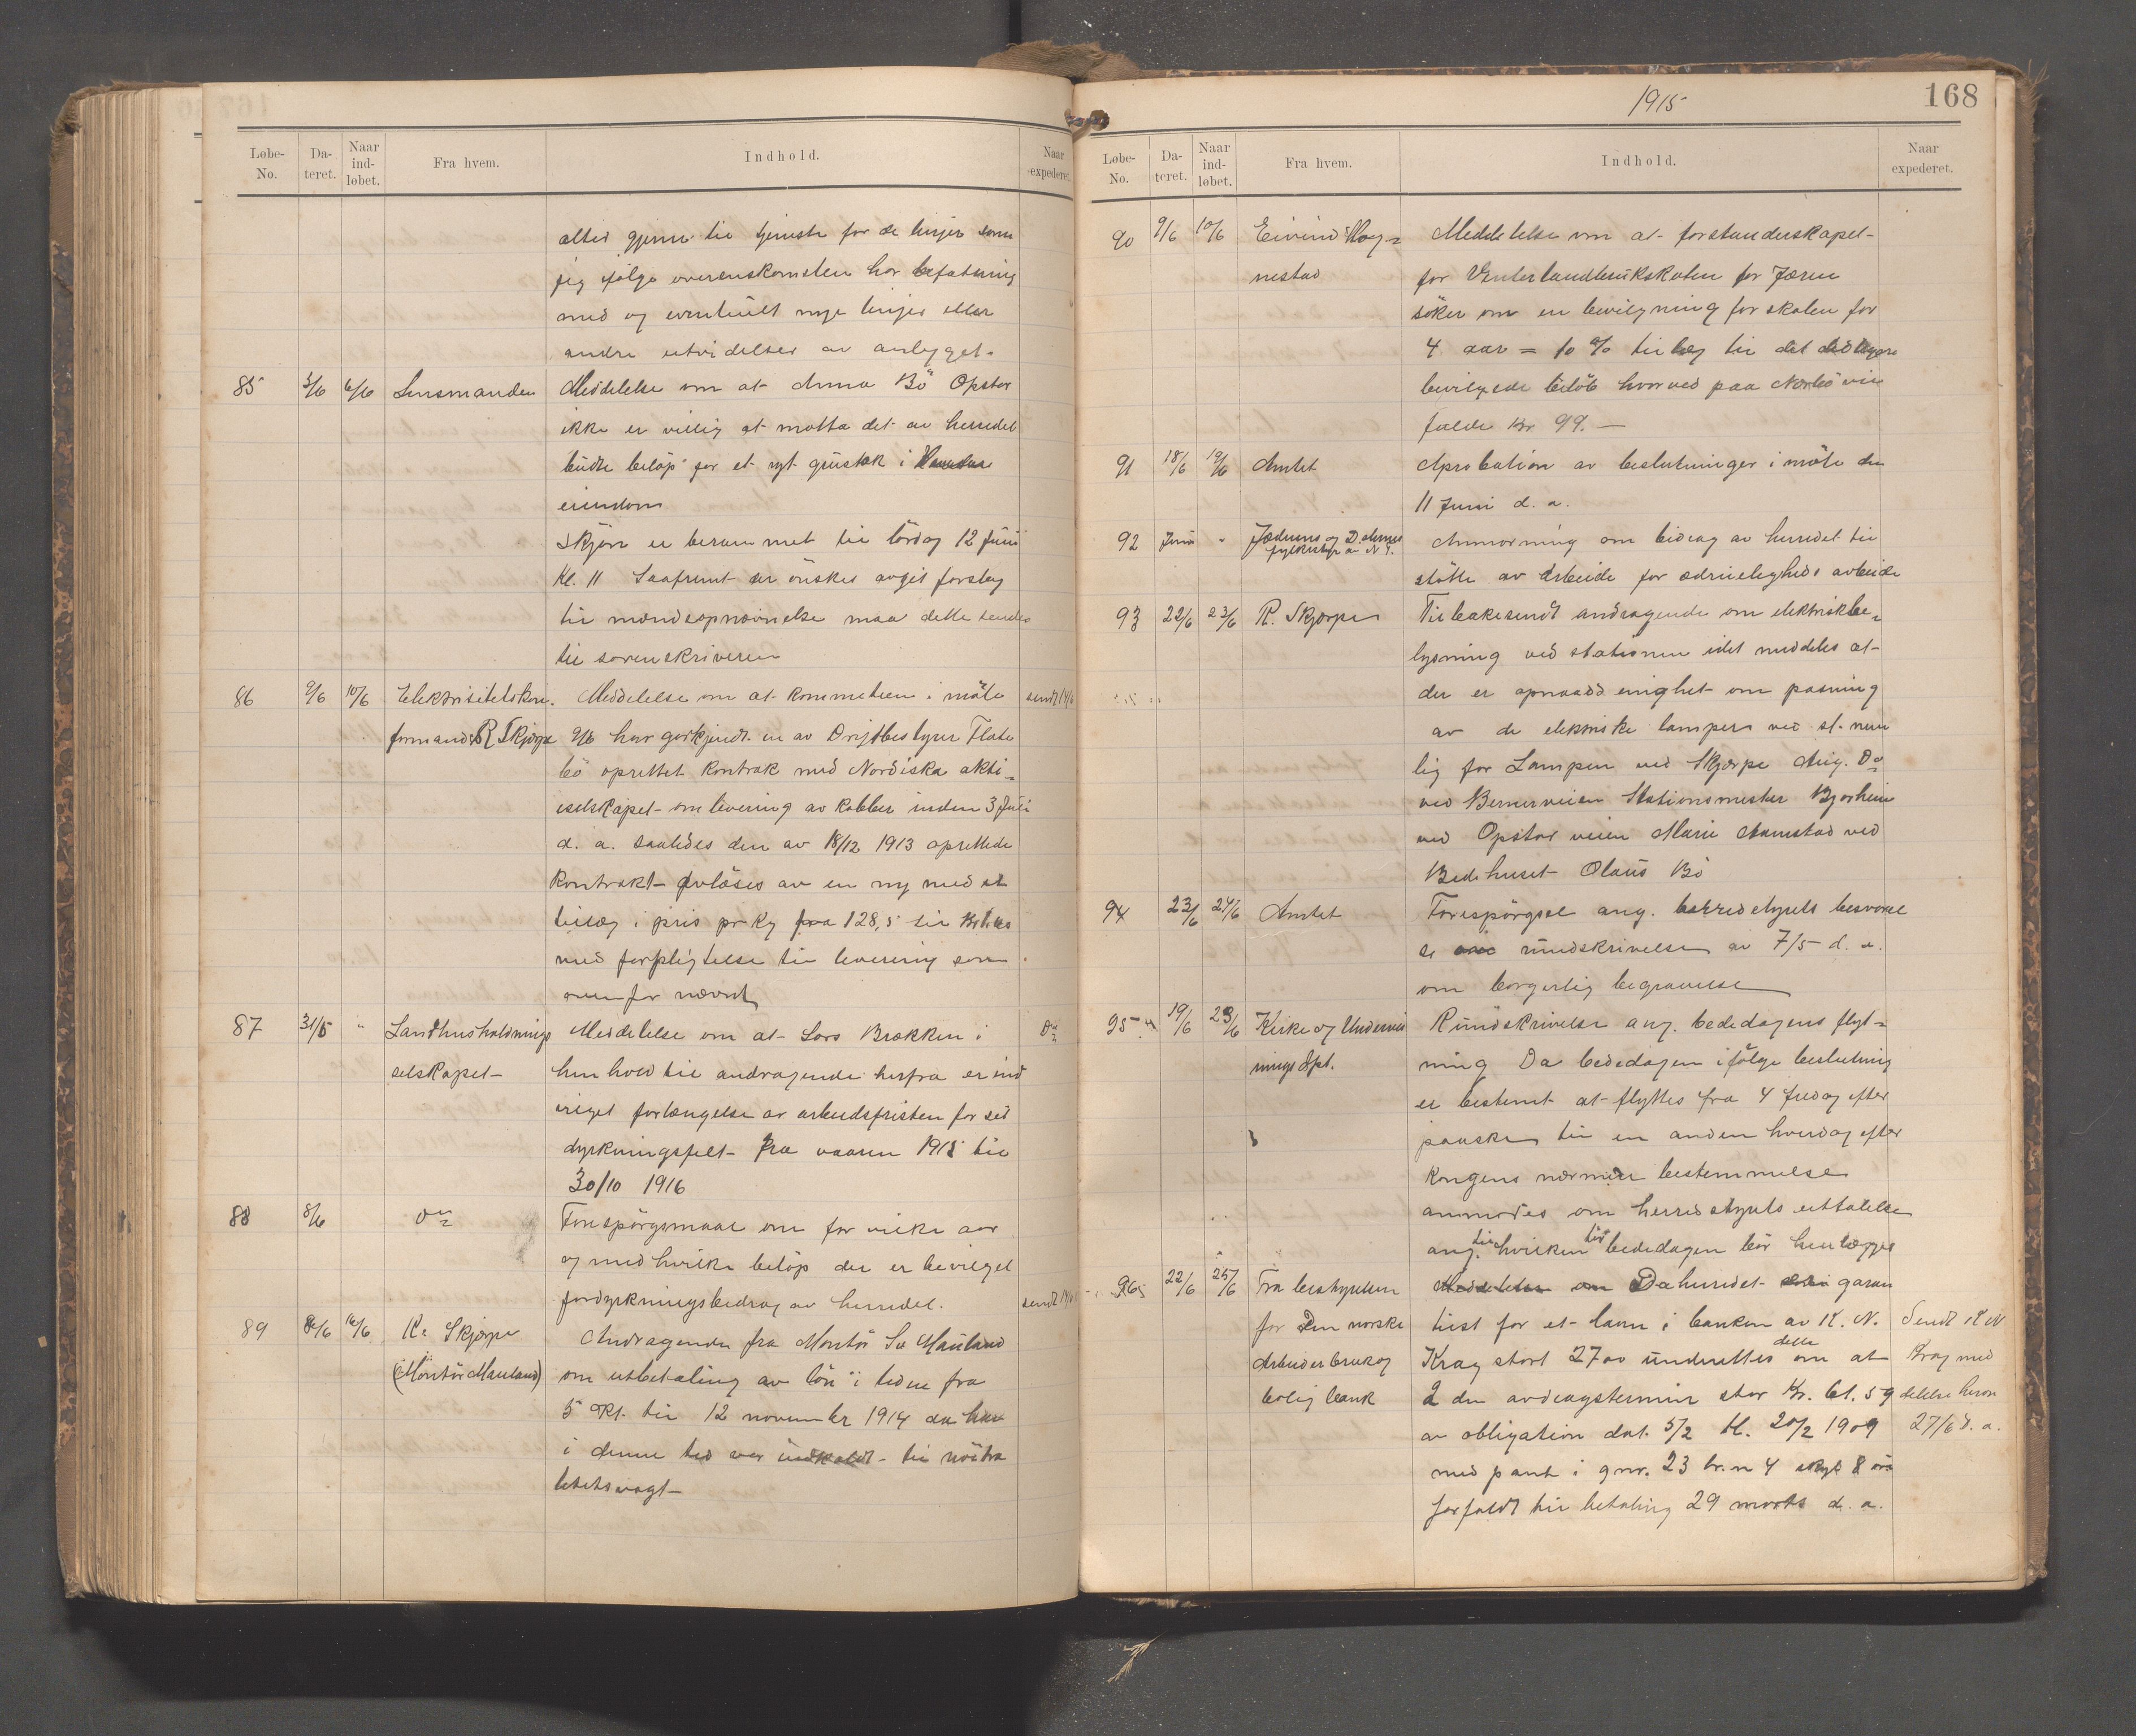 Løbe-No. Da-teret. Naar ind-løbet. Fra hvem. Indhold. Naar expederet.
altid gjerne til tjeneste for de linjer som
jeg ifølge overenskomsten har befatning
med og eventuelt nye linjer eller
andre utvidelser av anlegget.
85 3/6 6/6 Lensmanden Meddelelse om at Anna Bö Opstad
ikke er villig at motta det av herredet
budte beløp for et nyt grustak i hendes
eiendom
Skjøn er berammet til lördag 12 Juni
Kl. 11 Saafremt der ønskes avgit forslag
til mændsopnævnelse maa dette sendes
til sorenskriveren
86 9/6 10/6 Elektrisitetskom. Meddelelse om at kommiteen i möte sendt 14/6
formand R Skjærpe 9/6 har godkjendt en av Driftbestyrer Flate
bö oprettet kontrak med Nordiska akti-
eselskapet om levering av kobber inden 3 Juli
d. a. saaledes den av 18/12 1913 oprettede
kontrakt avlöses av en ny med et
tillæg i pris pr kg fra 128,5 til
med forpligtelse til levering som
ovenfor nævnt
87 31/5 " Landhusholdnings Meddelelse om at Lars Brekken i Do
selskapet henhold til andragende herfra er ind
vilget forlængelse av arbeidsfristen for sit
dyrkningsfelt fra vaaren 1915 til
30/10 1916
88 8/6 Do Forespørgsmaal om for vilke aar
og med hvilke beløp der er bevilget
fordyrkningsbidrag av herredet. sendt 14/6
89 8/6 10/6 R. Skjærpe Andragende fra Montör Sv Mauland
(Montör Mauland) om utbetaling av lön i tiden fra
5 Okt. til 12 november 1914 da han
i denne tid var indkaldt til nöitra
litetsvagt
1915 168
Løbe-No. Da-teret. Naar ind-løbet. Fra hvem. Indhold. Naar expederet.
90 9/6 10/6 Eivind Hog= Meddelelse om at forstanderskapet
nestad for Vinterlandbrukskolen for Jæren
söker om en bevilgning for skolen for
4 aar = 10 % tillæg til det tidligere
bevilgede beløb hvorved paa Nærbö vil
falde Kr 99.—
91 18/6 19/6 Amtet Aprobation av beslutninger i möte den
11 Juni d. a.
92 Juni " Jæderens og Dalernes Anmodning om bidrag av herredet til
fylkeslag av N T. stötte av arbeide for ædruelighets arbeide
93 22/6 23/6 R. Skjærpe Tilbakesendt andragende om elektriskbe-
lysning ved stationen idet meddeles at
der er opnaadd enighet om pasning
av de elektriske lamper ved st. nem
lig for Lampen ved Skjærpe Aug. Do
ved Bernerveien Stationsmester Bjorheim
ved Opstad veien Marie Aamstad ved
Bedehuset Olaus Bö
94 23/6 24/6 Amtet Forespörgsel ang. herredstyrets besvarel
se rundskrivelse av 7/5 d. a.
om borgerlig begravelse
95 19/6 23/6 Kirke og Undervis Rundskrivelse ang. bededagens flyt=
nings Dpt. ning Da bededagen ifölge beslutning
er bestemt at flyttes fra 4 fredag efter
paaske til en anden hverdag efter
kongens nærmere bestemmelse
anmodes om herredstyrets uttalelse
ang. til hvilken tid bededagen bör henlægges
96 22/6 25/6 Fra bestyrelsen Meddelelse om Da herredet garan
for Den norske tiest for et laan i banken av K. N. Sendt K N
Arbeiderbruk og Krag stort 2700 underrettes dette om at Krag med
bolig bank 2 den avdragstermin stor Kr. 61.59 delelse herom
av obligation dat. 5/2 tl. 20/2 1909 27/6 d. a.
med pant i gnr. 23 br.n 4 skyld 8 öre
forfaldt til betaling 29 marts d. a.